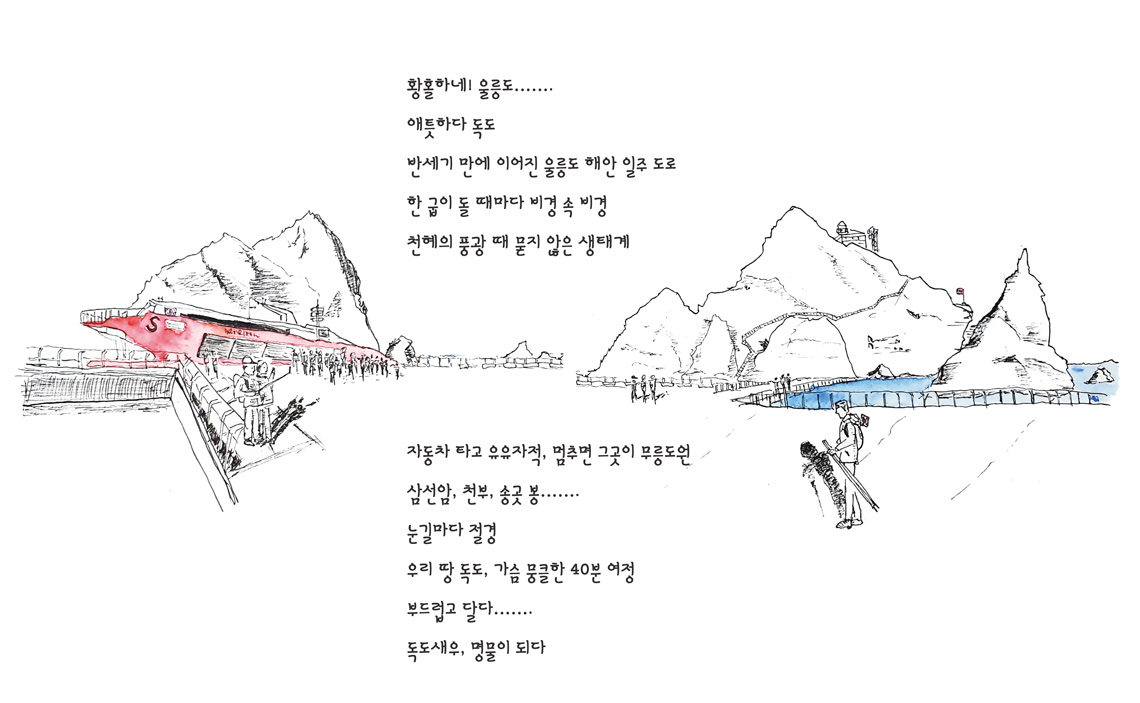 황홀하네! 울릉도.......
애틋하다 독도
반세기 만에 이어진 울릉도 해안 일주 도로
한 굽이 돌 때마다 비경 속 비경
천혜의 풍광 때 묻지 않은 생태계
S
자동차 타고 유유자적, 멈추면 그곳이 무릉도원
삼선암, 천부, 송곳 봉.......
눈길마다 절경
우리 땅 독도, 가슴 뭉클한 40분 여정
부드럽고 달다.......
독도새우, 명물이 되다